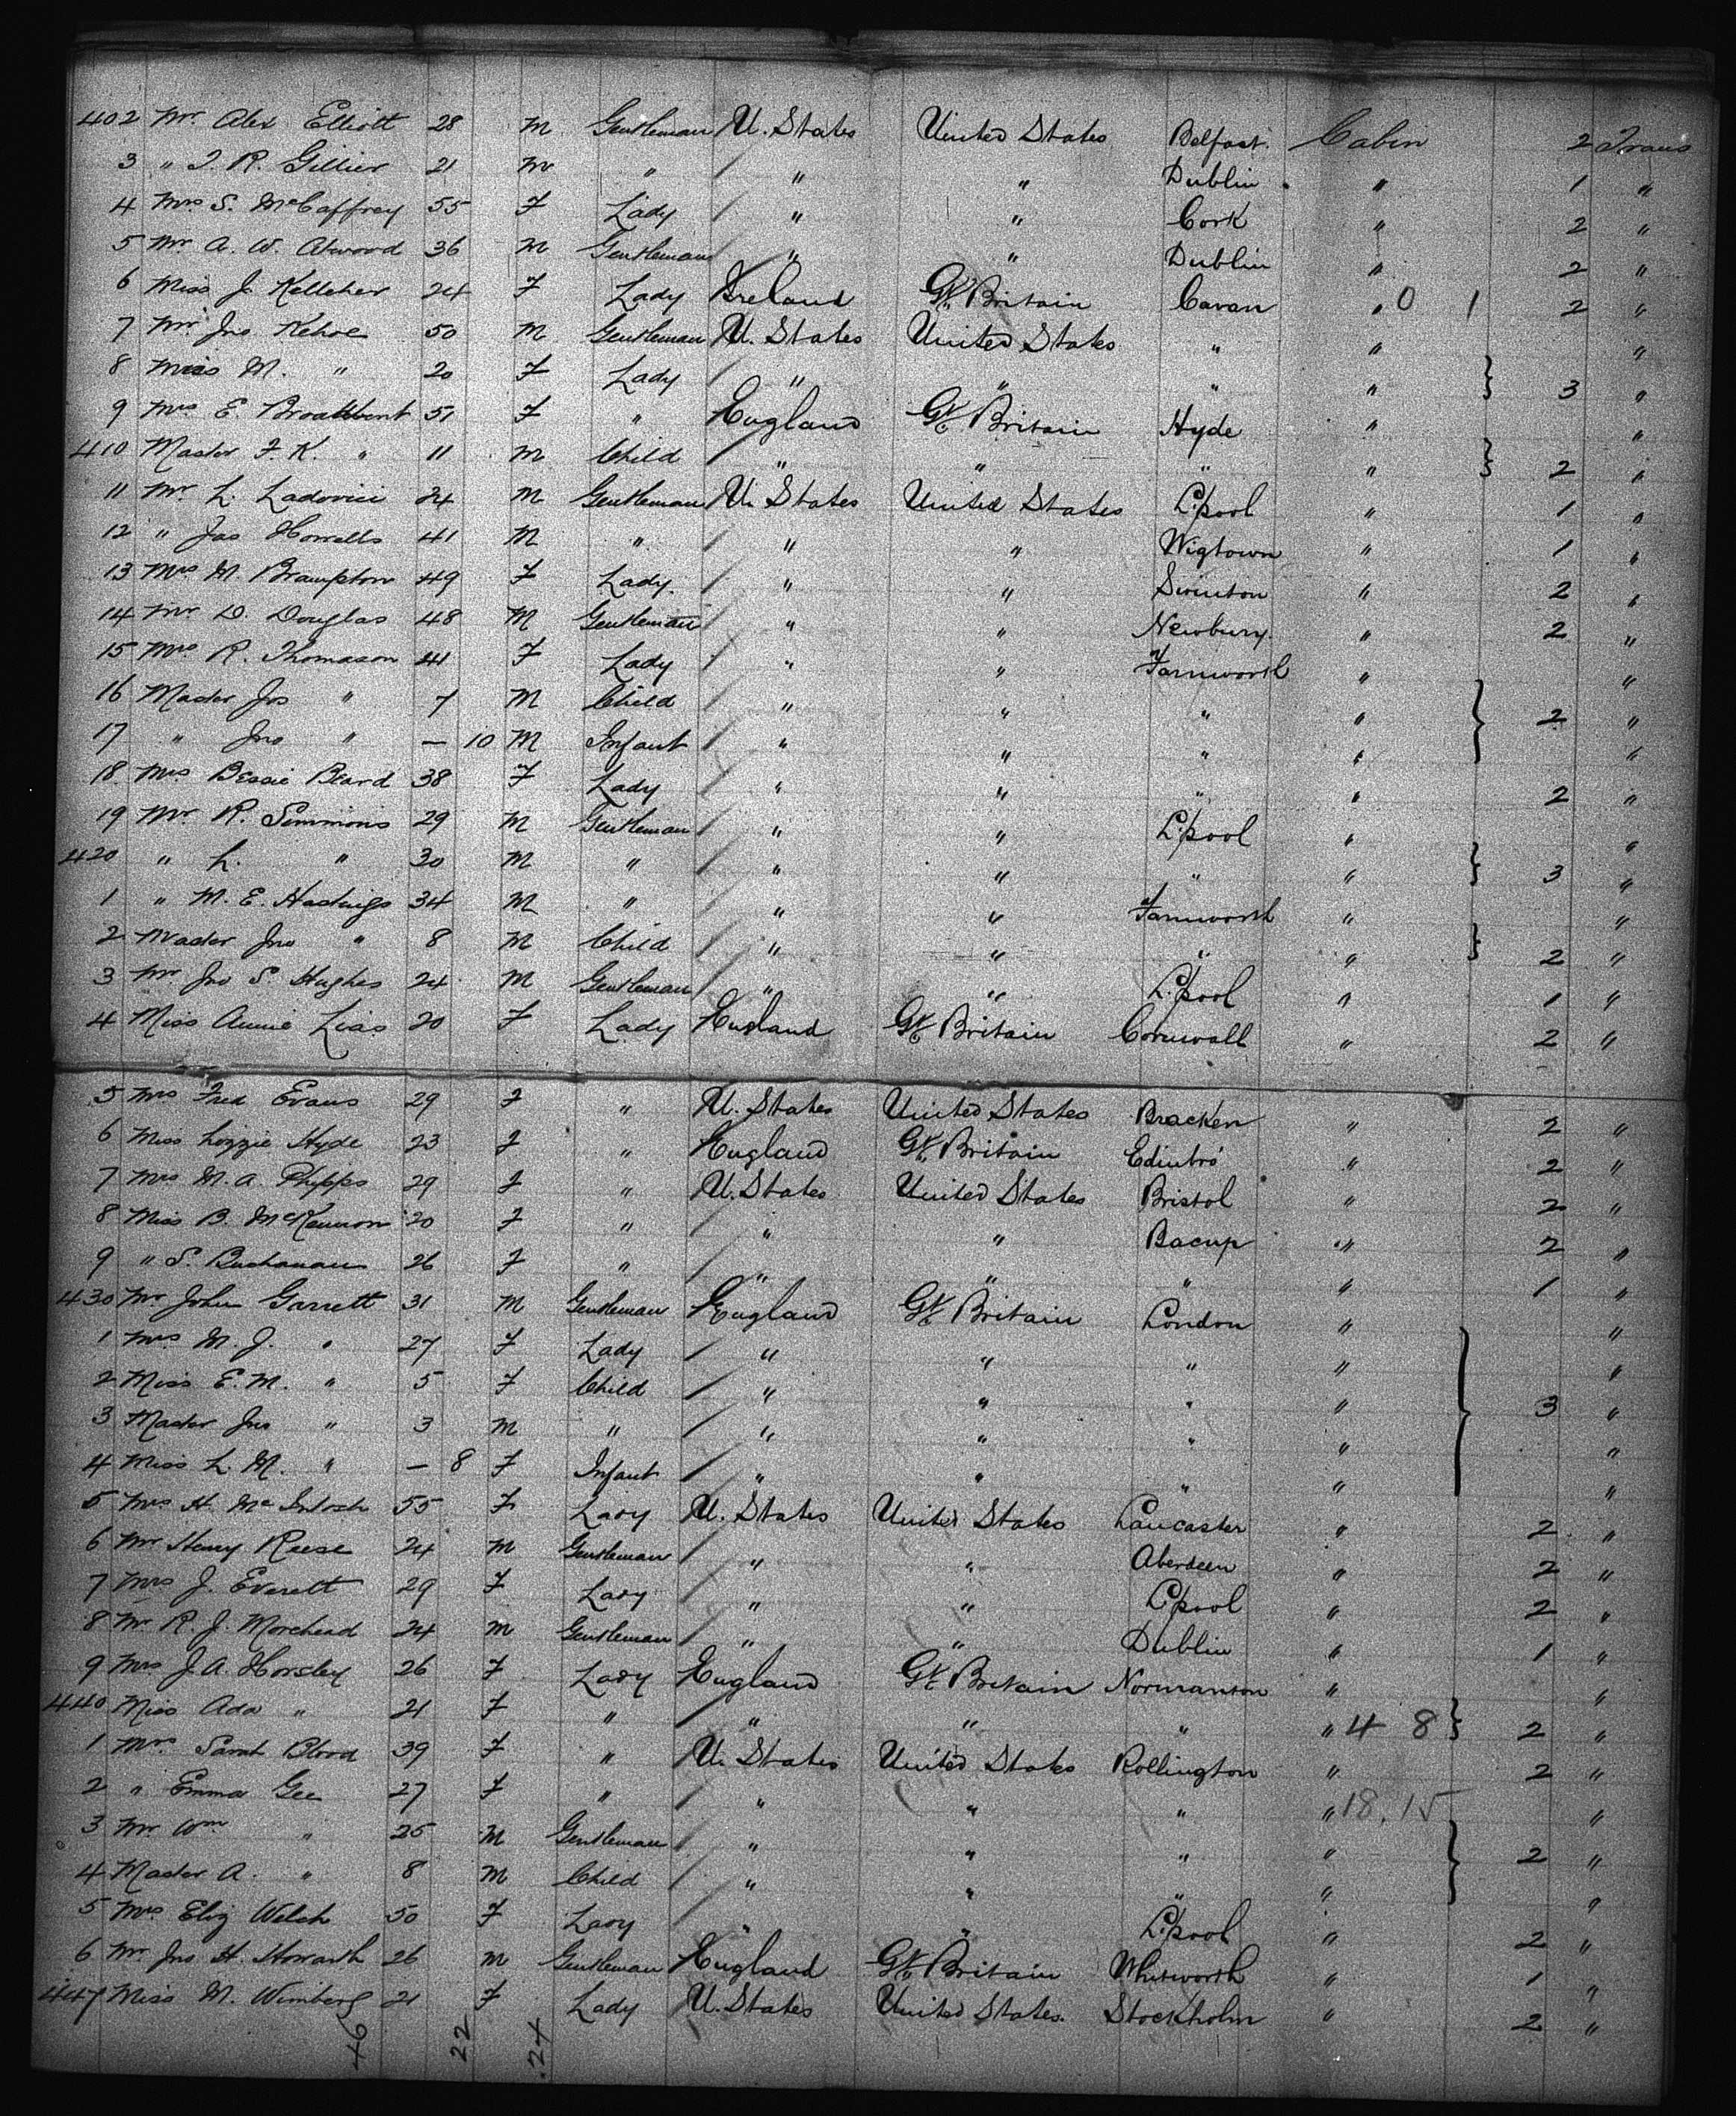 402 Mr. Alex Elliott 28 M Gentleman U. States United States Belfast Cabin 2 Trans
3 " J. R. Gillier 21 M " " " Dublin " 1 "
4 Mrs S. McCaffrey 55 F Lady " " Cork " 2 "
5 Mr A. W. Atwood 36 M Gentleman " " Dublin " 2 "
6 Miss J. Kelleher 24 F Lady Ireland Gt Britain Cavan " 0 1 2 "
7 Mr Jno Kehoe 50 M Gentleman U. States United States " " "
8 Miss M. " 20 F Lady " " " " } 3 "
9 Mrs E Broadbent 51 F " England Gt Britain Hyde " "
410 Master F. K. " 11 M Child " " " " } 2 "
11 Mr L. Ladovici 24 M Gentleman U. States United States L'pool " 1 "
12 " Jas Horrells 41 M " " " Wigtown " 1 "
13 Mrs M. Brampton 49 F Lady " " Swinton " 2 "
14 Mr D. Douglas 48 M Gentleman " " Newbury " 2 "
15 Mrs R. Thomason 41 F Lady " " Farnworth " "
16 Master Jos " 7 M Child " " " " } 2 "
17 " Jno " — 10 M Infant " " " " "
18 Mrs Bessie Beard 38 F Lady " " " " 2 "
19 Mr R. Simmons 29 M Gentleman " " L'pool " "
420 " L. " 30 M " " " " " } 3 "
1 " M. E. Hastings 34 M " " " Farnworth " "
2 Master Jno " 8 M Child " " " " } 2 "
3 Mr Jno S. Hughes 24 M Gentleman " " L'pool " 1 "
4 Miss Annie Lias 20 F Lady England Gt Britain Cornwall " 2 "
5 Mrs Fred Evans 29 F " U. States United States Bracken " 2 "
6 Miss Lizzie Hyde 23 F " England Gt Britain Edinbro' " 2 "
7 Mrs M. A. Phipps 29 F " U. States United States Bristol " 2 "
8 Miss B. McKennon 20 F " " " Bacup " 2 "
9 " S. Buchanan 26 F " " " " " 1 "
430 Mr John Garrett 31 M Gentleman England Gt Britain London " "
1 Mrs M. J. " 27 F Lady " " " " "
2 Miss E. M. " 5 F Child " " " " } 3 "
3 Master Jno " 3 M " " " " " "
4 Miss L. M. " — 8 F Infant " " " " "
5 Mrs H. McIntosh 55 F Lady U. States United States Lancaster " 2 "
6 Mr Henry Reese 24 M Gentleman " " Aberdeen " 2 "
7 Mrs J. Everett 29 F Lady " " L'pool " 2 "
8 Mr R. J. Morehead 24 M Gentleman " " Dublin " 1 "
9 Mrs J. A. Horsley 26 F Lady England Gt Britain Normanton " "
440 Miss Ada " 21 F " " " " " 4 8 } 2 "
1 Mrs Sarah Blood 39 F " U. States United States Rollington " 2 "
2 " Emma Gee 27 F " " " " " 18.15 "
3 Mr Wm " 25 M Gentleman " " " " } 2 "
4 Master A. " 8 M Child " " " " "
5 Mrs Eliz Welch 50 F Lady " " L'pool " 2 "
6 Mr Jno H. Howarth 26 M Gentleman England Gt Britain Whitworth " 1 "
447 Miss M. Wimberg 21 F Lady U. States United States Stockholm " 2 "
46 22 24